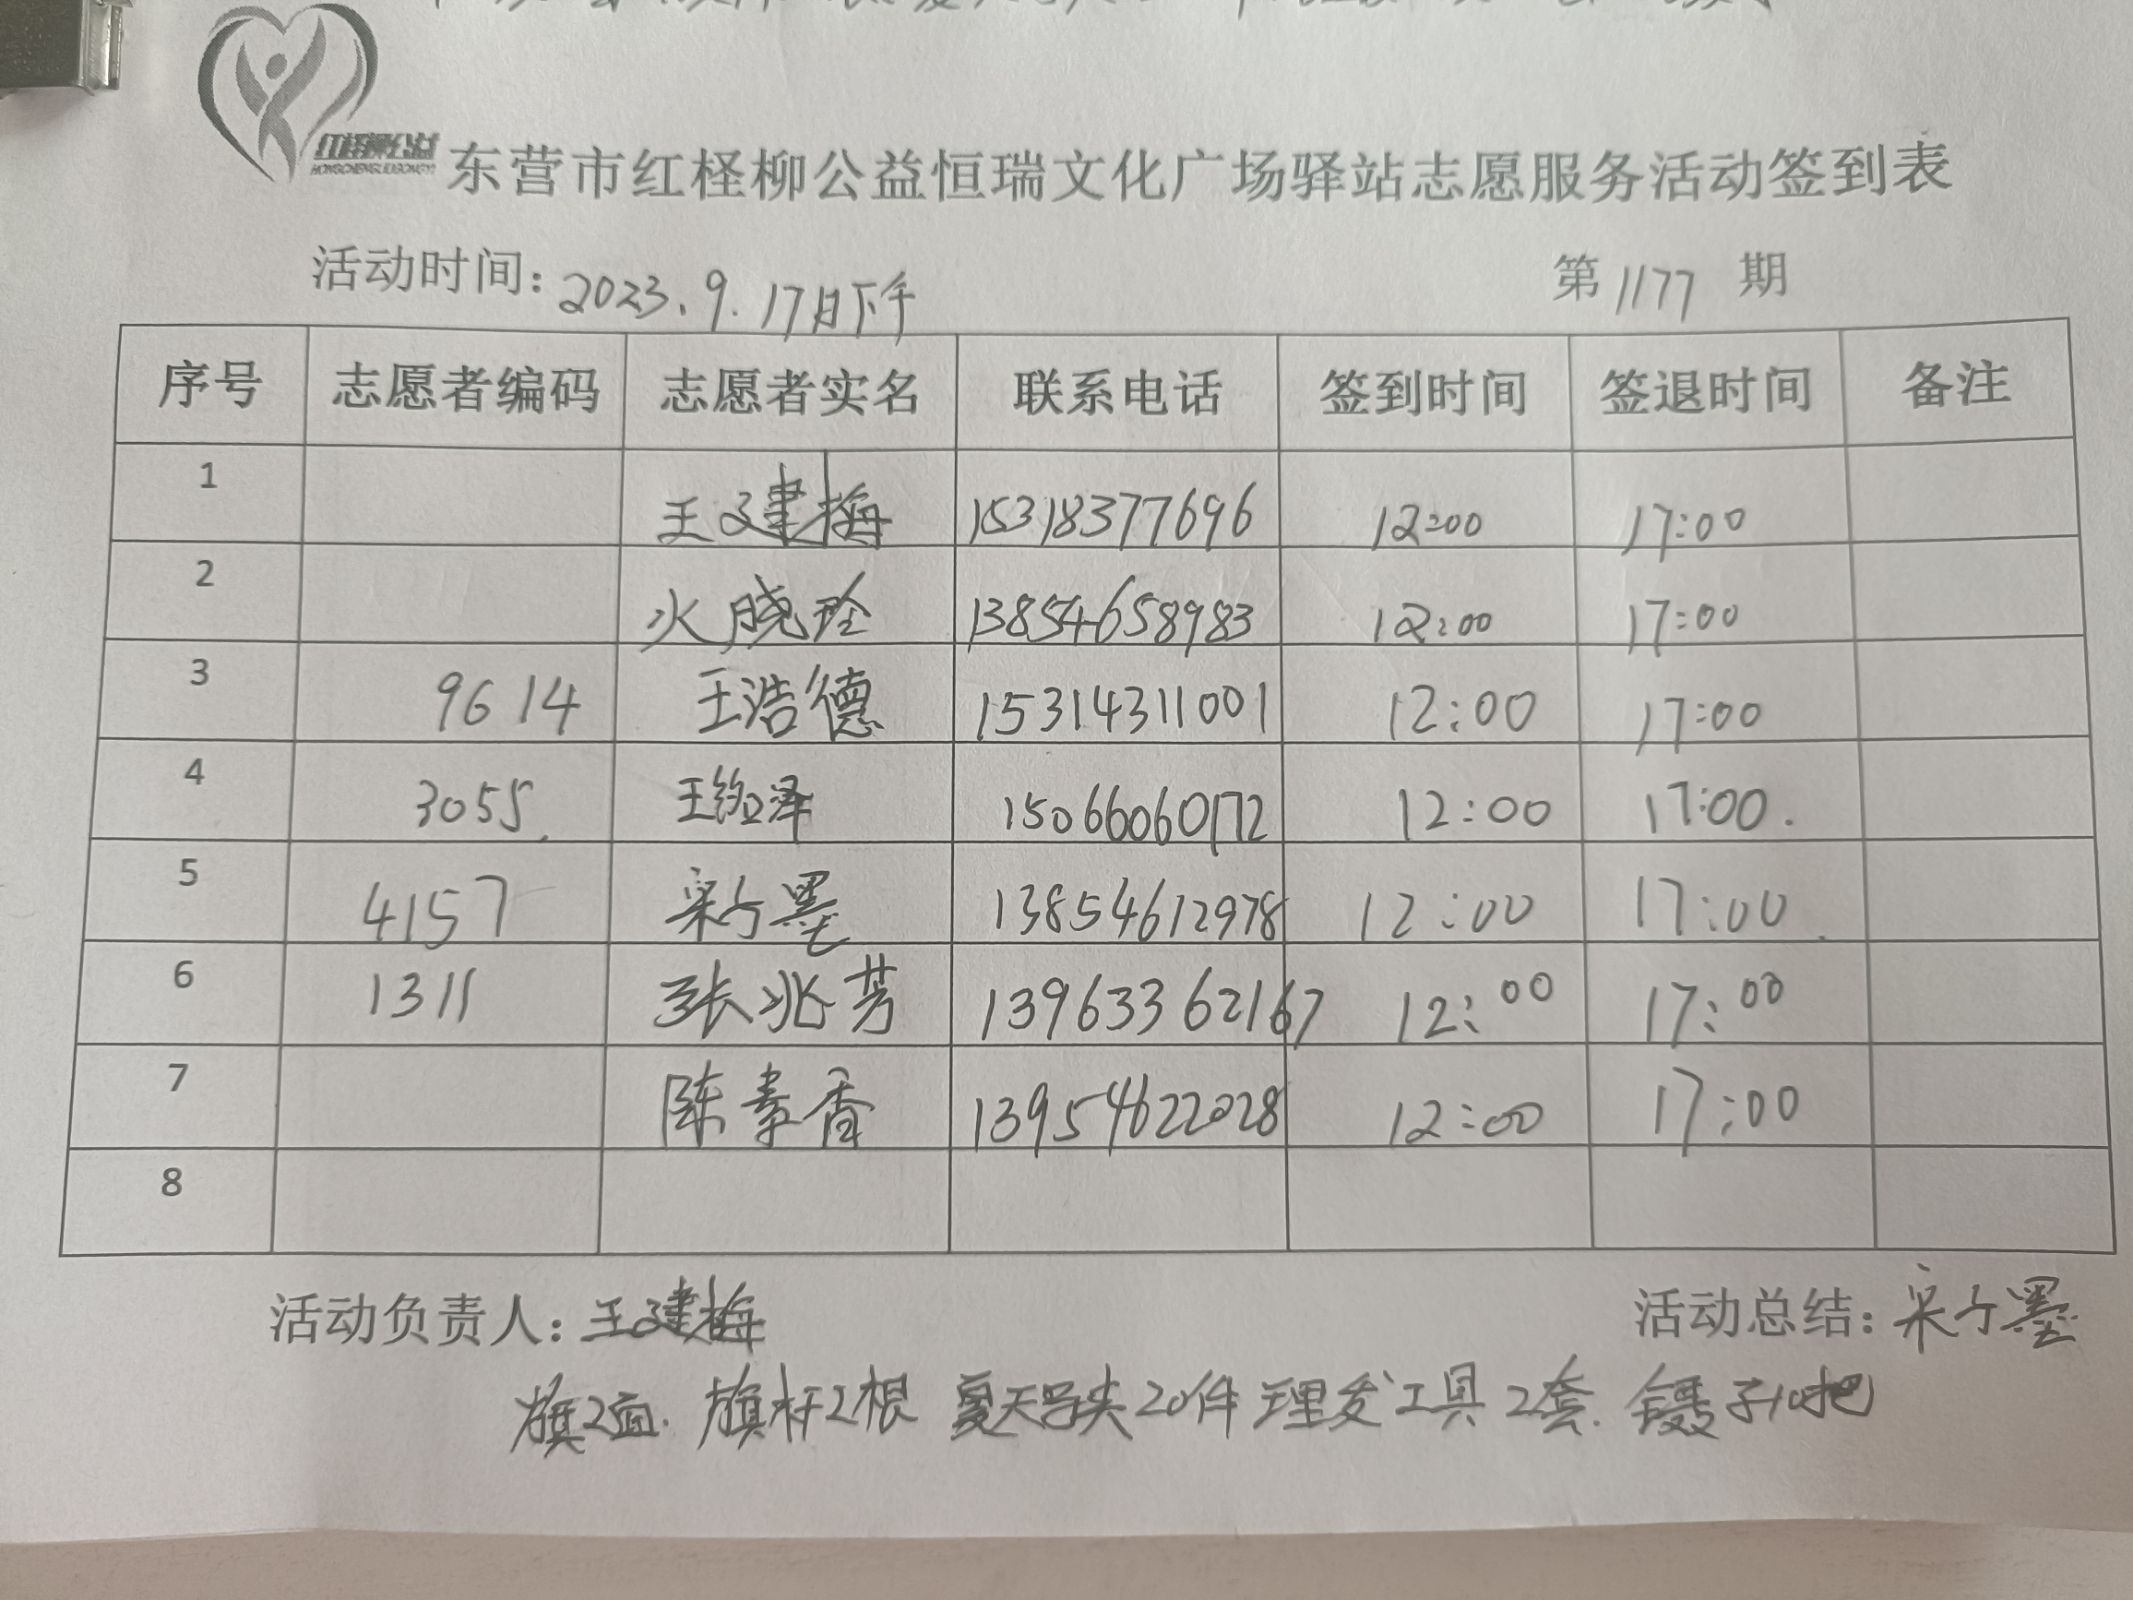 红柽柳公益
东营市红柽柳公益恒瑞文化广场驿站志愿服务活动签到表
活动时间：2023.9.17日下午 第1177期
序号 志愿者编码 志愿者实名 联系电话 签到时间 签退时间 备注
1 王建梅 15318377696 12:00 17:00
2 火晓玲 13854658983 12:00 17:00
3 9614 王浩德 15314311001 12:00 17:00
4 3055 王 泽 15066060172 12:00 17:00.
5 4157 墨 13854612978 12:00 17:00
6 1311 张兆芳 13963362167 12:00 17:00
7 陈素香 13954622028 12:00 17:00
8
活动负责人：王建梅 活动总结： 墨
旗2面. 旗杆2根 夏天马夹20件 理发工具2套. 镊子10把